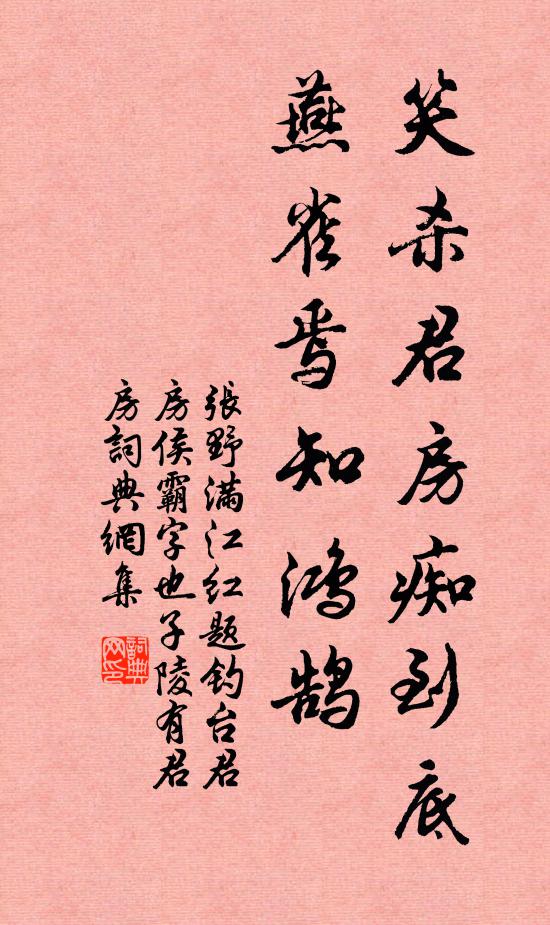 笑杀君房痴到底
燕雀焉知鸿鹄
張野滿江红题钓台君
房侯霸字也子陵有君
房詞典網集
詞典网印